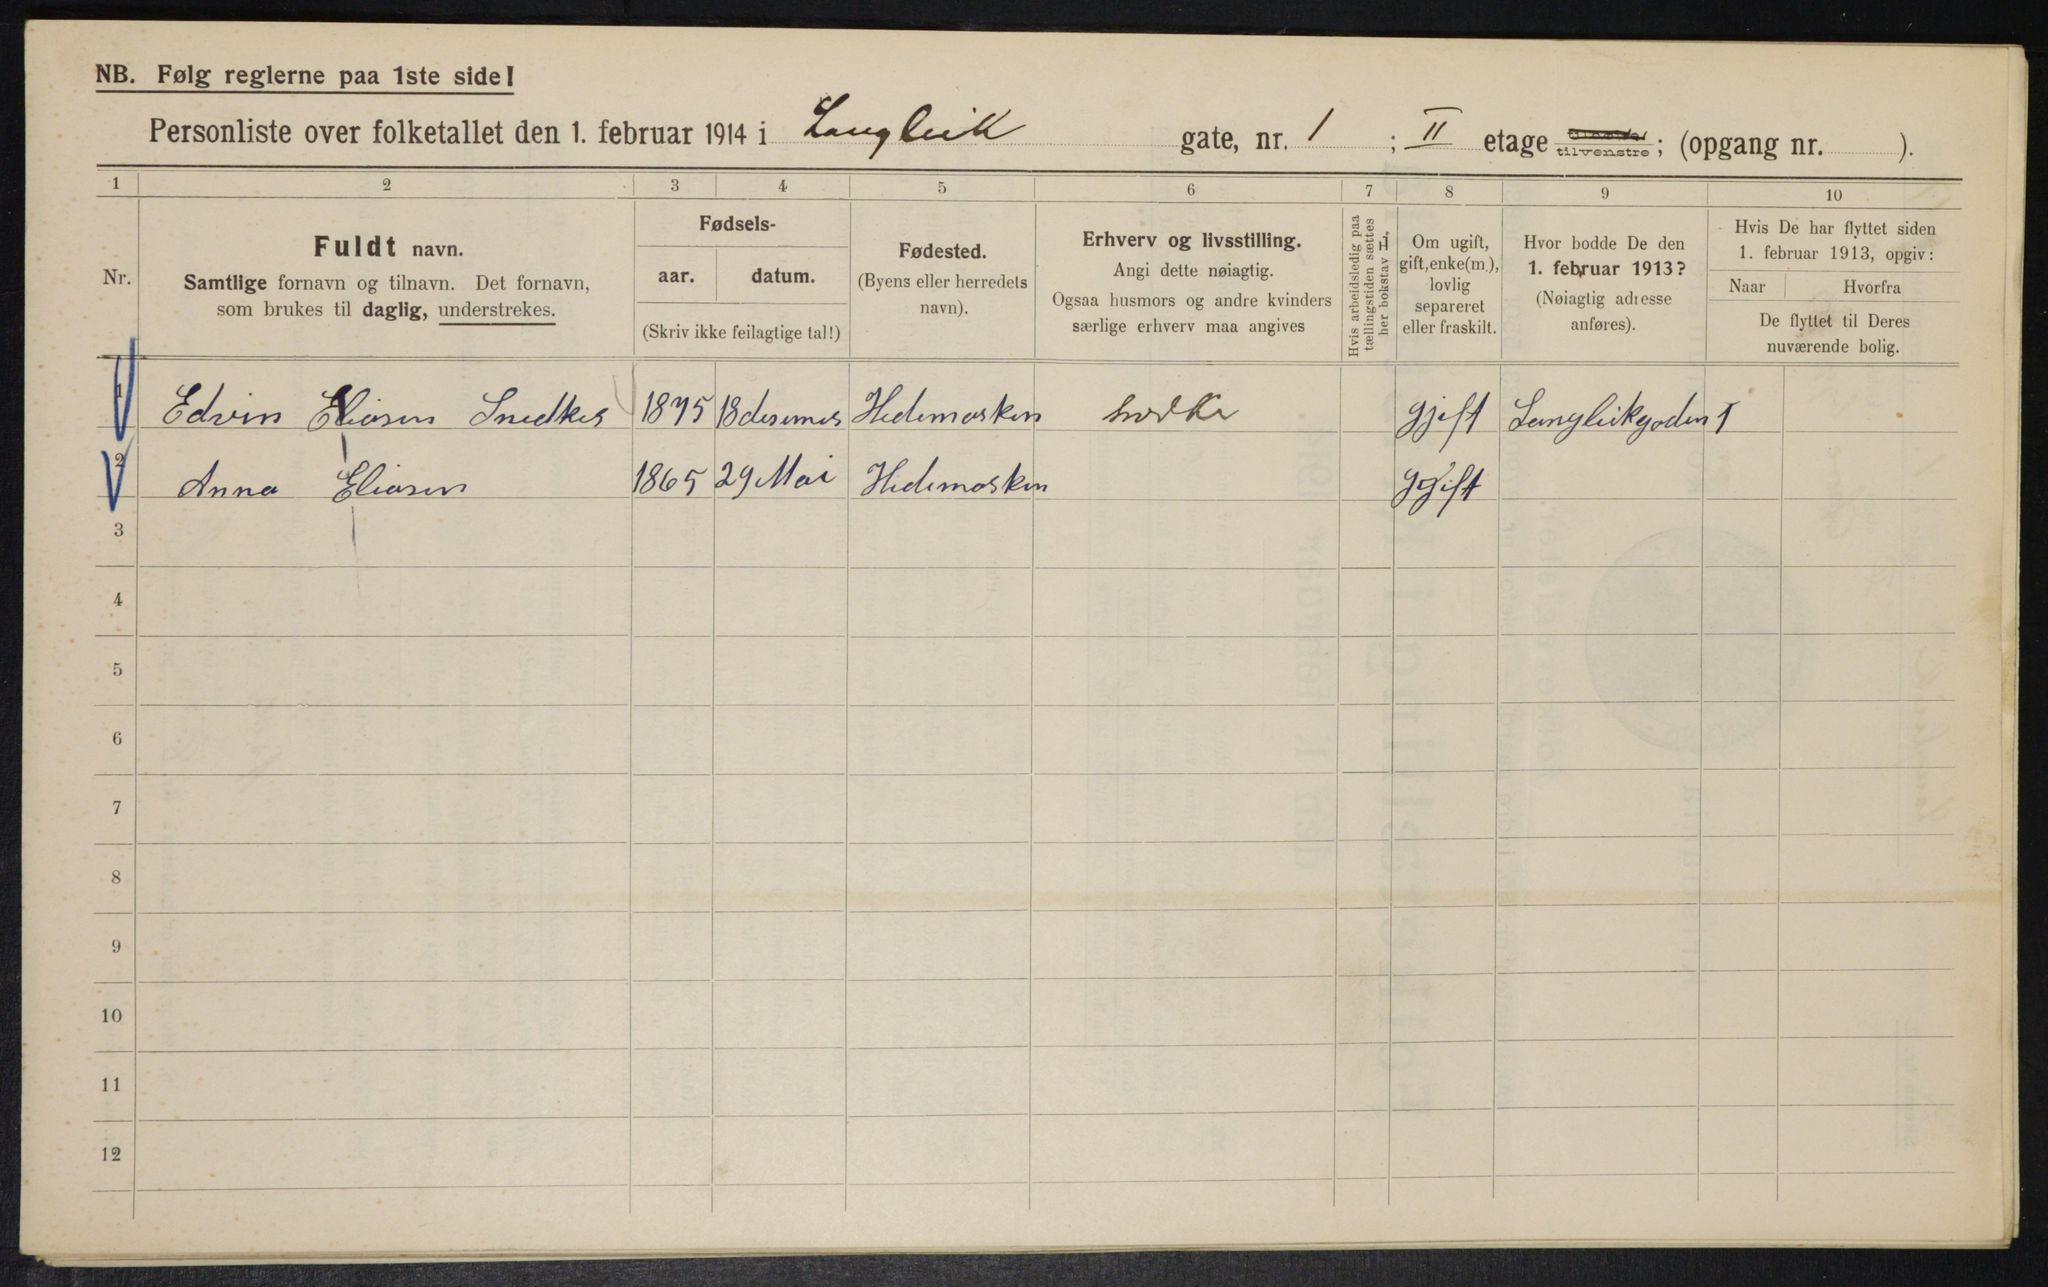 NB. Følg reglerne paa 1ste side!
Personliste over folketallet den 1. februar 1914 i Langleik gate, nr. 1 ; II etage tilvenstre; (opgang nr. ).
1 2 3 4 5 6 7 8 9 10
Nr.
Fuldt navn.
Samtlige fornavn og tilnavn. Det fornavn,
som brukes til daglig, understrekes.
Fødsels-
aar. datum.
(Skriv ikke feilagtige tal!)
Fødested.
(Byens eller herredets
navn).
Erhverv og livsstilling.
Angi dette nøiagtig.
Ogsaa husmors og andre kvinders
særlige erhverv maa angives
Hvis arbeidsledig paa
tællingstiden sættes
her bokstav L.
Om ugift,
gift, enke(m.),
lovlig
separeret
eller fraskilt.
Hvor bodde De den
1. februar 1913?
(Nøiagtig adresse
anføres).
Hvis De har flyttet siden
1. februar 1913, opgiv:
Naar Hvorfra
De flyttet til Deres
nuværende bolig.
1 Edvin Eliasen Snedker 1875 18 desemer Hedemarken gjift Langleikgaden 1
2 Anna Eliasen 1865 29 Mai Hedemarken gjift
3
4
5
6
7
8
9
10
11
12